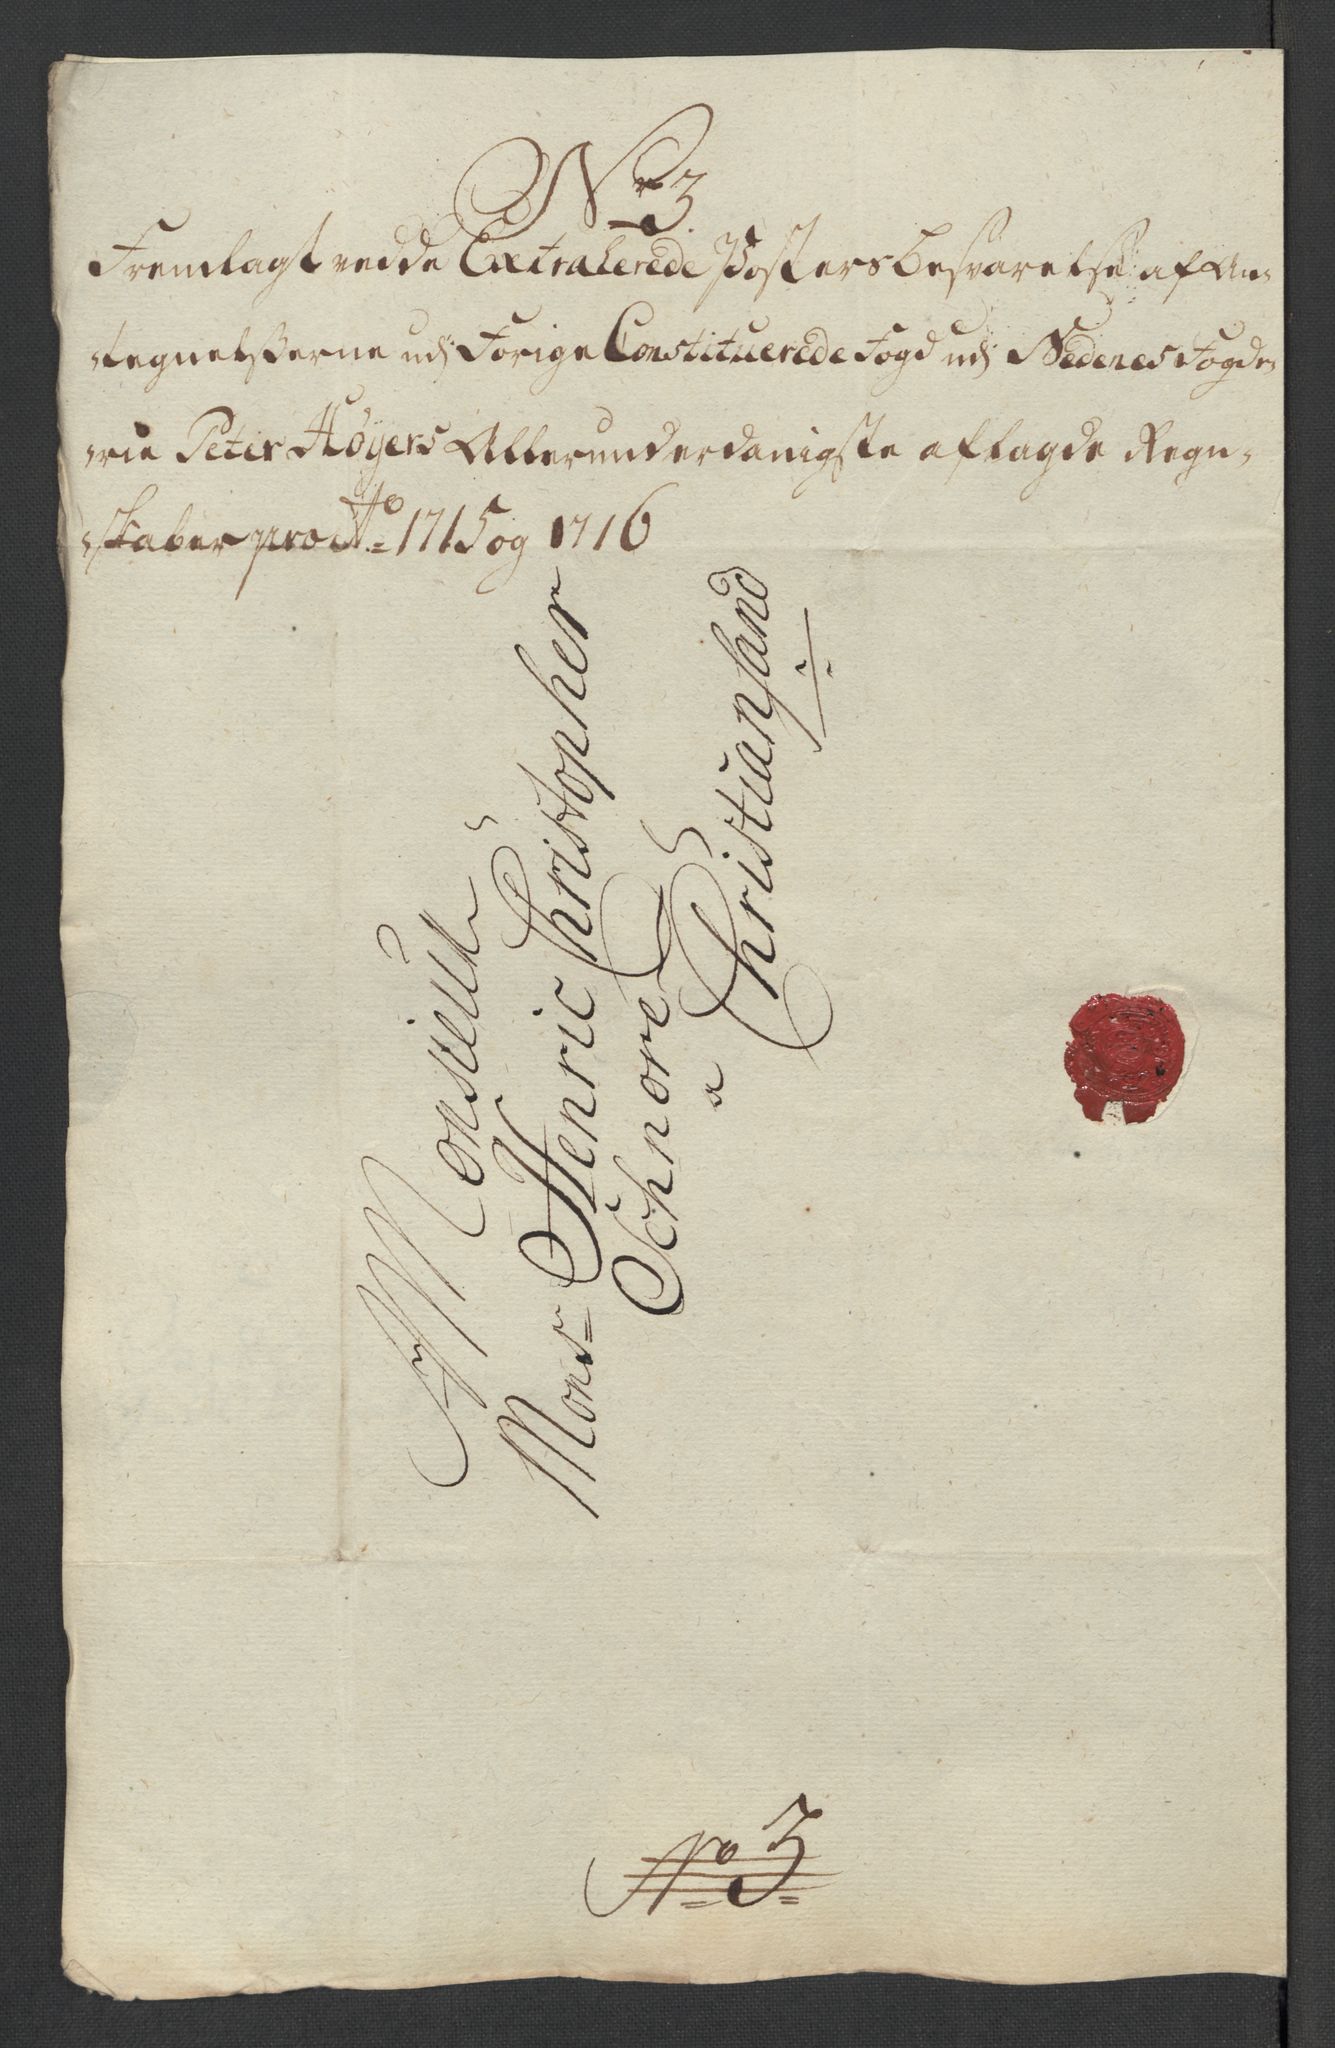 Nr 3.
Fremlagt ved de Extraherede Posters besvarelse af An-
tegnelsserne udj Forige Constituerede Fogd udj Nedenes Fogde-
rie Peter Høyers Allerunderdanigste aflagde Regn-
skaber pro Ao 1715 og 1716
A Monsieur
Monsr Henric Christopher
Schnore
a Christiansand
No 3